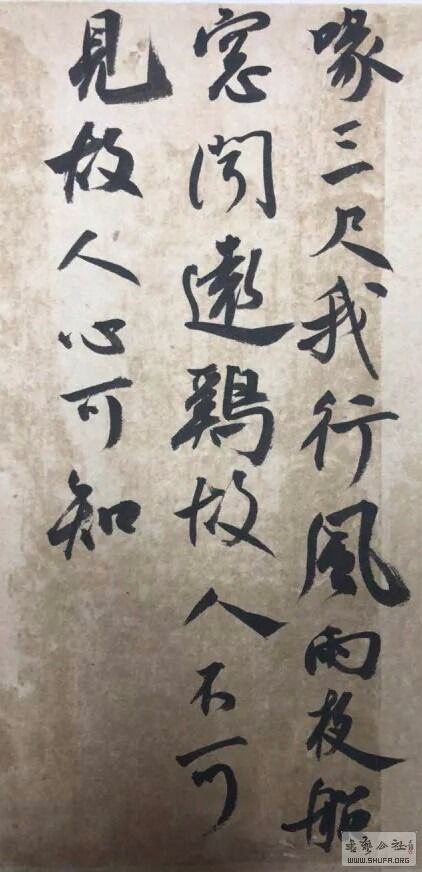 喙三尺我行風雨夜船
窓聞遠鷄故人不可
見故人心可知
書藝公社
WWW.SHUFA.ORG